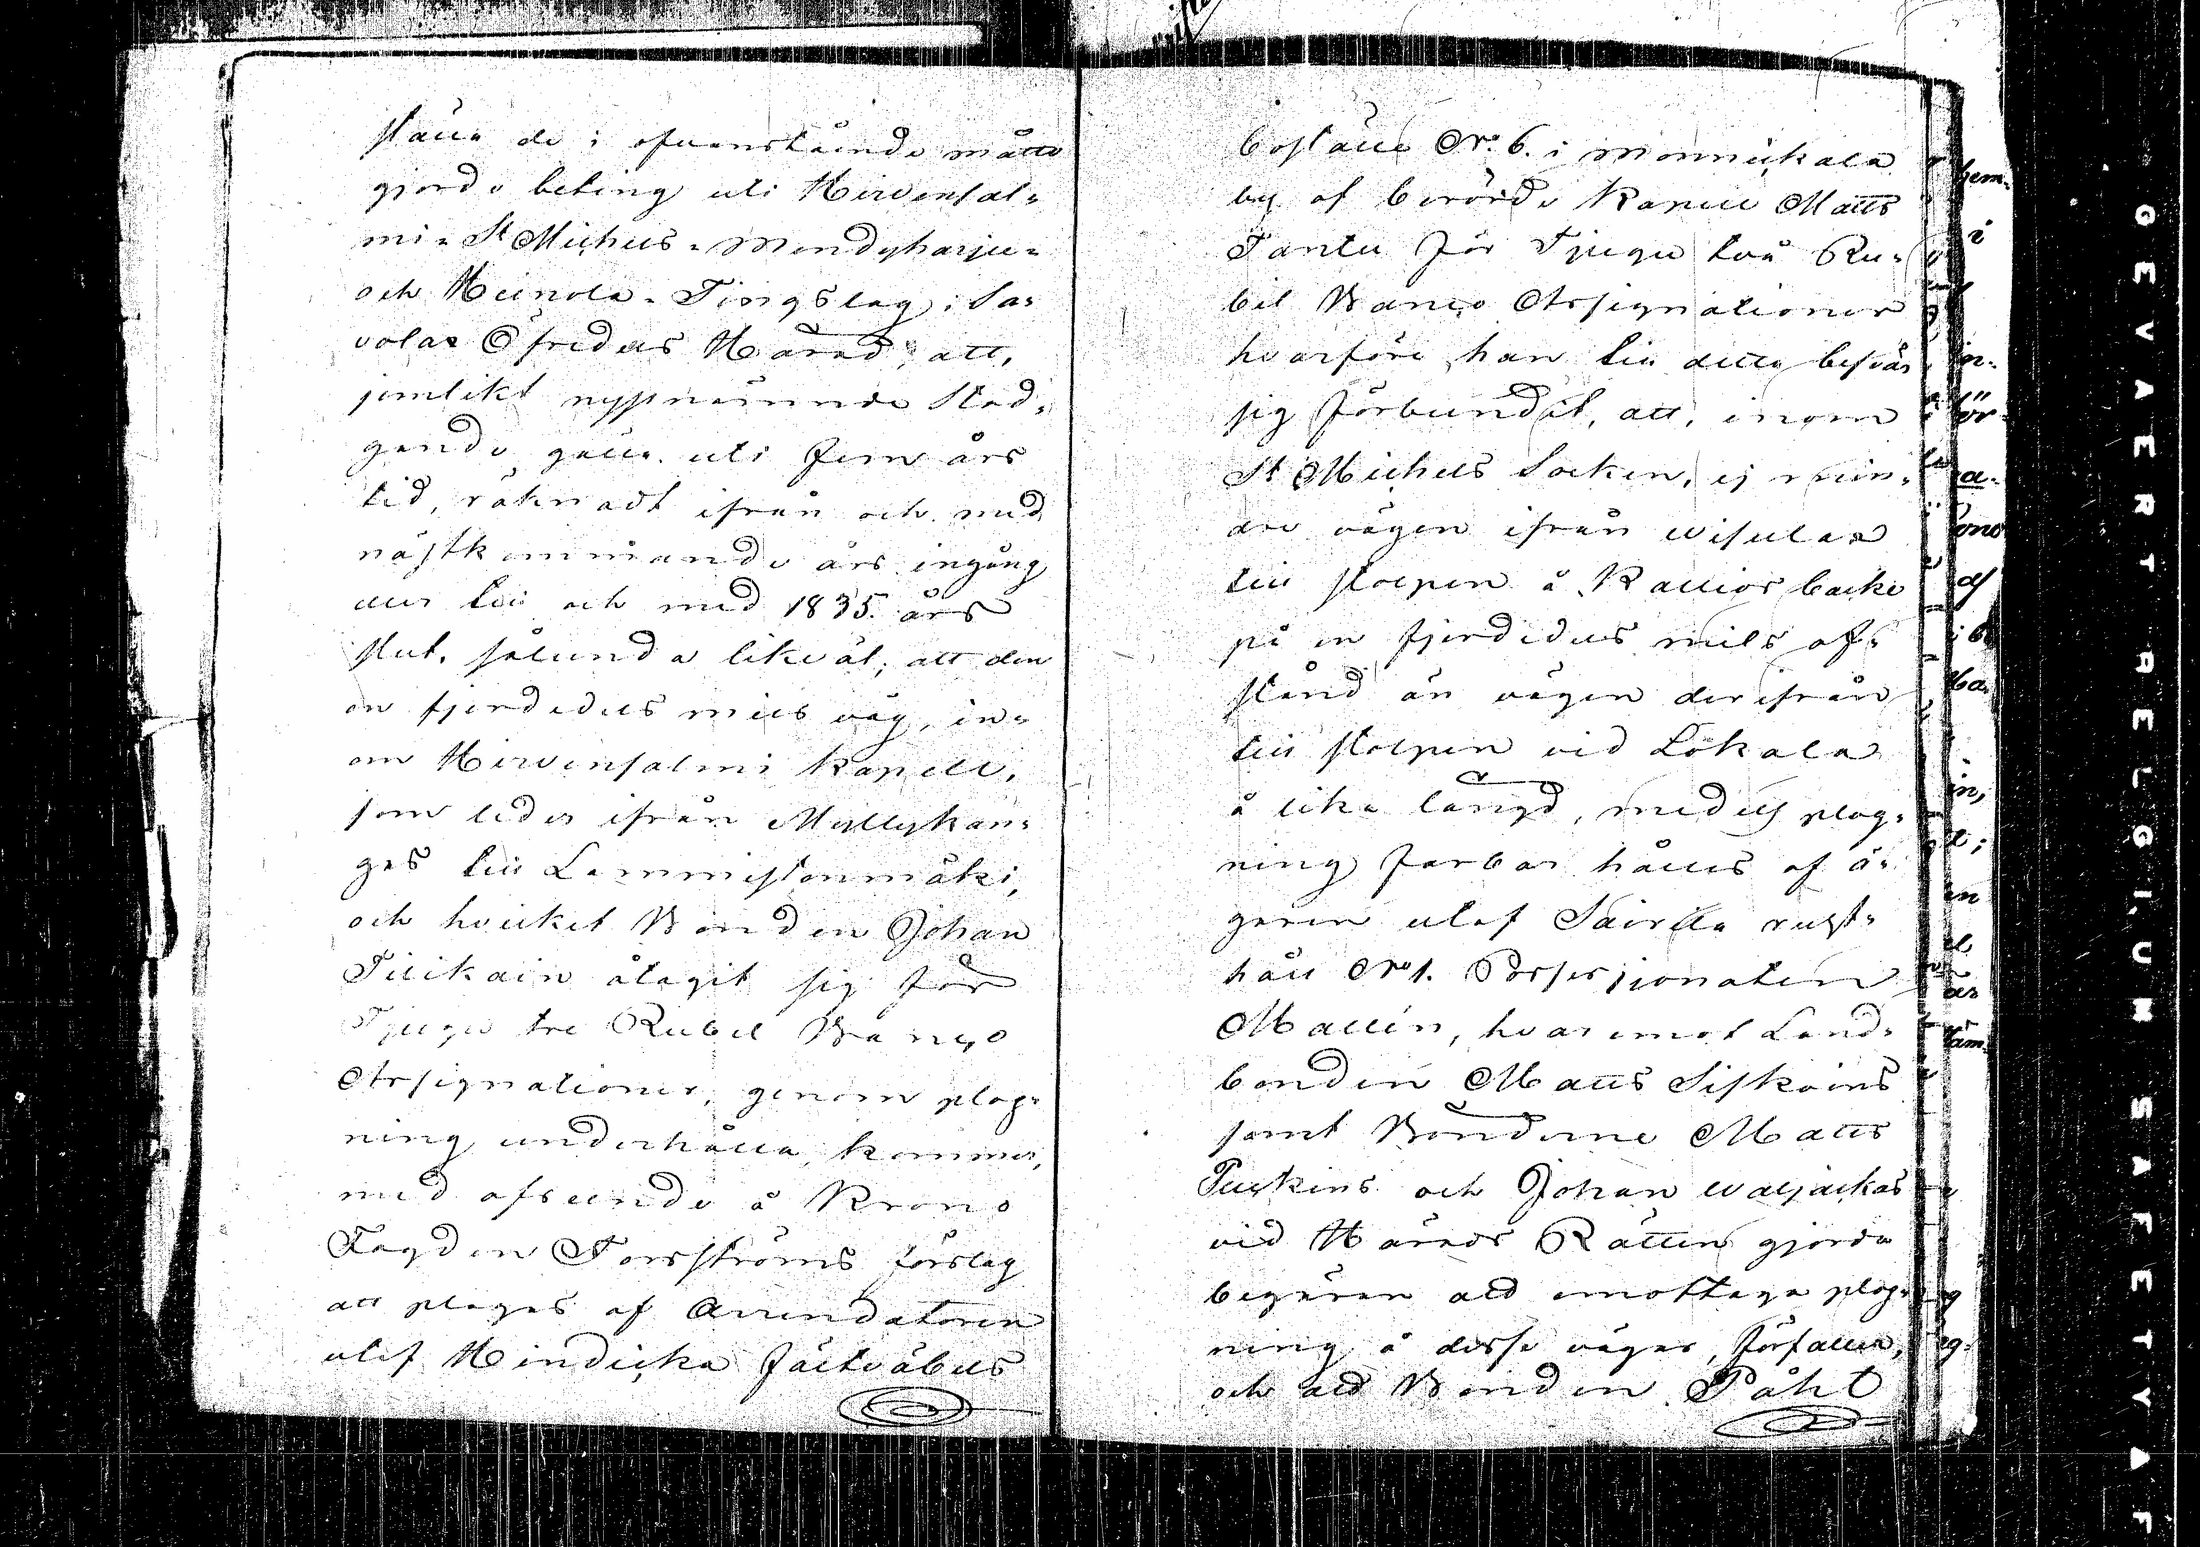 ställa de i ofvanstående måtto
gjorde beting uti Hirvensal-
mi- St Michels- Mendyharju-
och Heinola- Tingslag i Sa-
volax Öfredels Härad, att,
jemlikt nyssnämnde Stad-
gande gälla uti Fem års
tid, räknadt ifrån och med
nästkommande års ingång
allt till och med 1835. års
slut, sålunda likväl, att den
en fjerdedels mils väg, in-
om Hirvensalmi kapell,
som leder ifrån Myllykan-
gas till Lammistenmäki,
och hvilket Bonden Johan
Tiilikain åtagit sig för
Tjugu tre Rubel Banco
Assignationer, genom plog-
ning underhålla, kommer,
med afseende å Krono
Fogden Forsströms förslag
att plogas af Arrendatoren
utaf Heindicka Fältväbels
boställe No 6. i Monnickala
by af berörde Kapell Matts
Tantu för Tjugu två Ru-
bel Banco Assignationer
hvarföre han till detta besvär
sig förbundit, att, inom
St Michels Socken, ej min-
dre vägen ifrån Wisulax
till stolpen å Kallios backe
på en fjerdedels mils af-
stånd än vägen derifrån
till stolpen vid Lökala
å lika längd, medelst plog-
ning farbar hålles af ä-
garen utaf Sairila rust-
håll No 1. Possessionaten
Mallén, hvaremot Land-
bonden Matts Siskoins
samt Bönderne Matts
Pulkins och Johan Waljackas
vid Härads Rätten gjorda
begäran att emottaga plog-
ning å desse vägar, förfaller,
och att Bonden Påhl
hem-
i
in-
för-
a-
ono
af
i be
Ha-
in,
t;
en
el
är
täm-
g
eg-
GEVAERT BELGIUM SAFETY